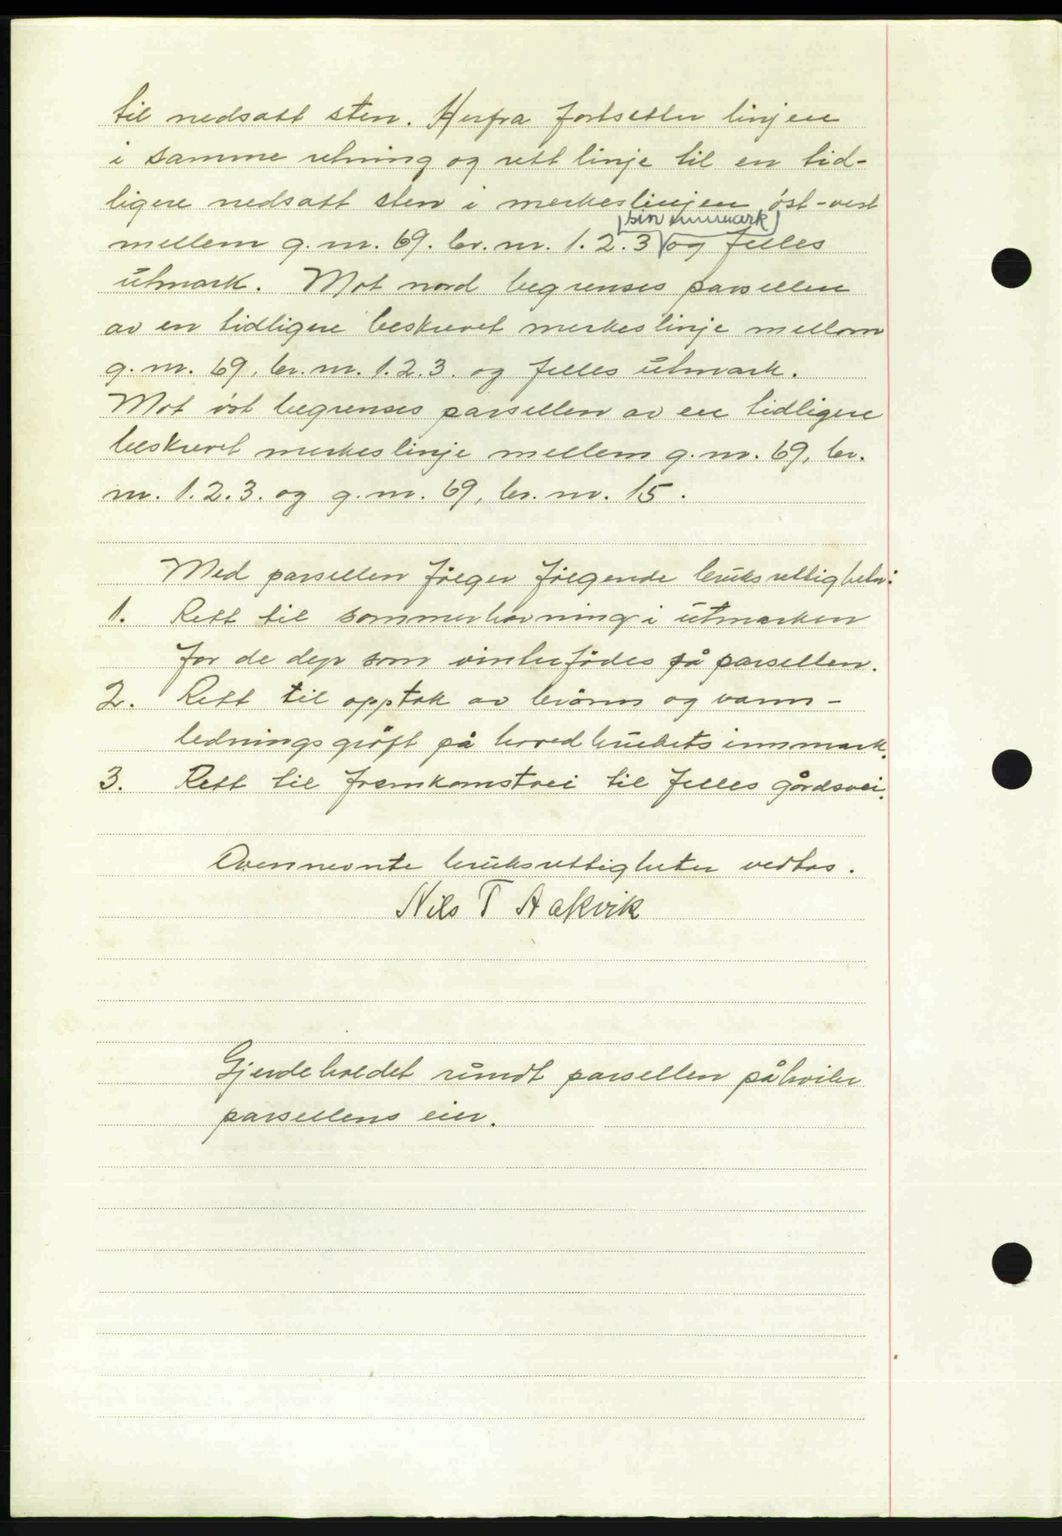 til nedsatt sten. Herfra fortsetter linjen
i samme retning og rett linje til en tid-
ligere nedsatt sten i merkeslinjen öst-vest
sin innmark
mellem g.nr. 69. br.nr. 1.2.3 og felles
utmark. Mot nord begrenses parsellen
av en tidligere beskrevet merkeslinje mellom
g.nr. 69, br.nr. 1.2.3. og felles utmark.
Mot öst begrenses parsellen av en tidligere
beskrevet merkeslinje mellem g.nr. 69, br.
nr. 1.2.3. og g.nr. 69, br.nr. 15.
Med parsellen fölger fölgende bruksrettigheter:
1. Rett til sommerhavning i utmarken
for de dyr som vinterfödes på parsellen.
2. Rett til opptak av brönn og vann-
ledningsgröft på hovedbrukets innmark.
3. Rett til fremkomstvei til felles gårdsvei.
Ovennevnte bruksrettigheter vedtas.
Nils T Aakvik
Gjerdeholdet rundt parsellen påhviler
parsellens eier.